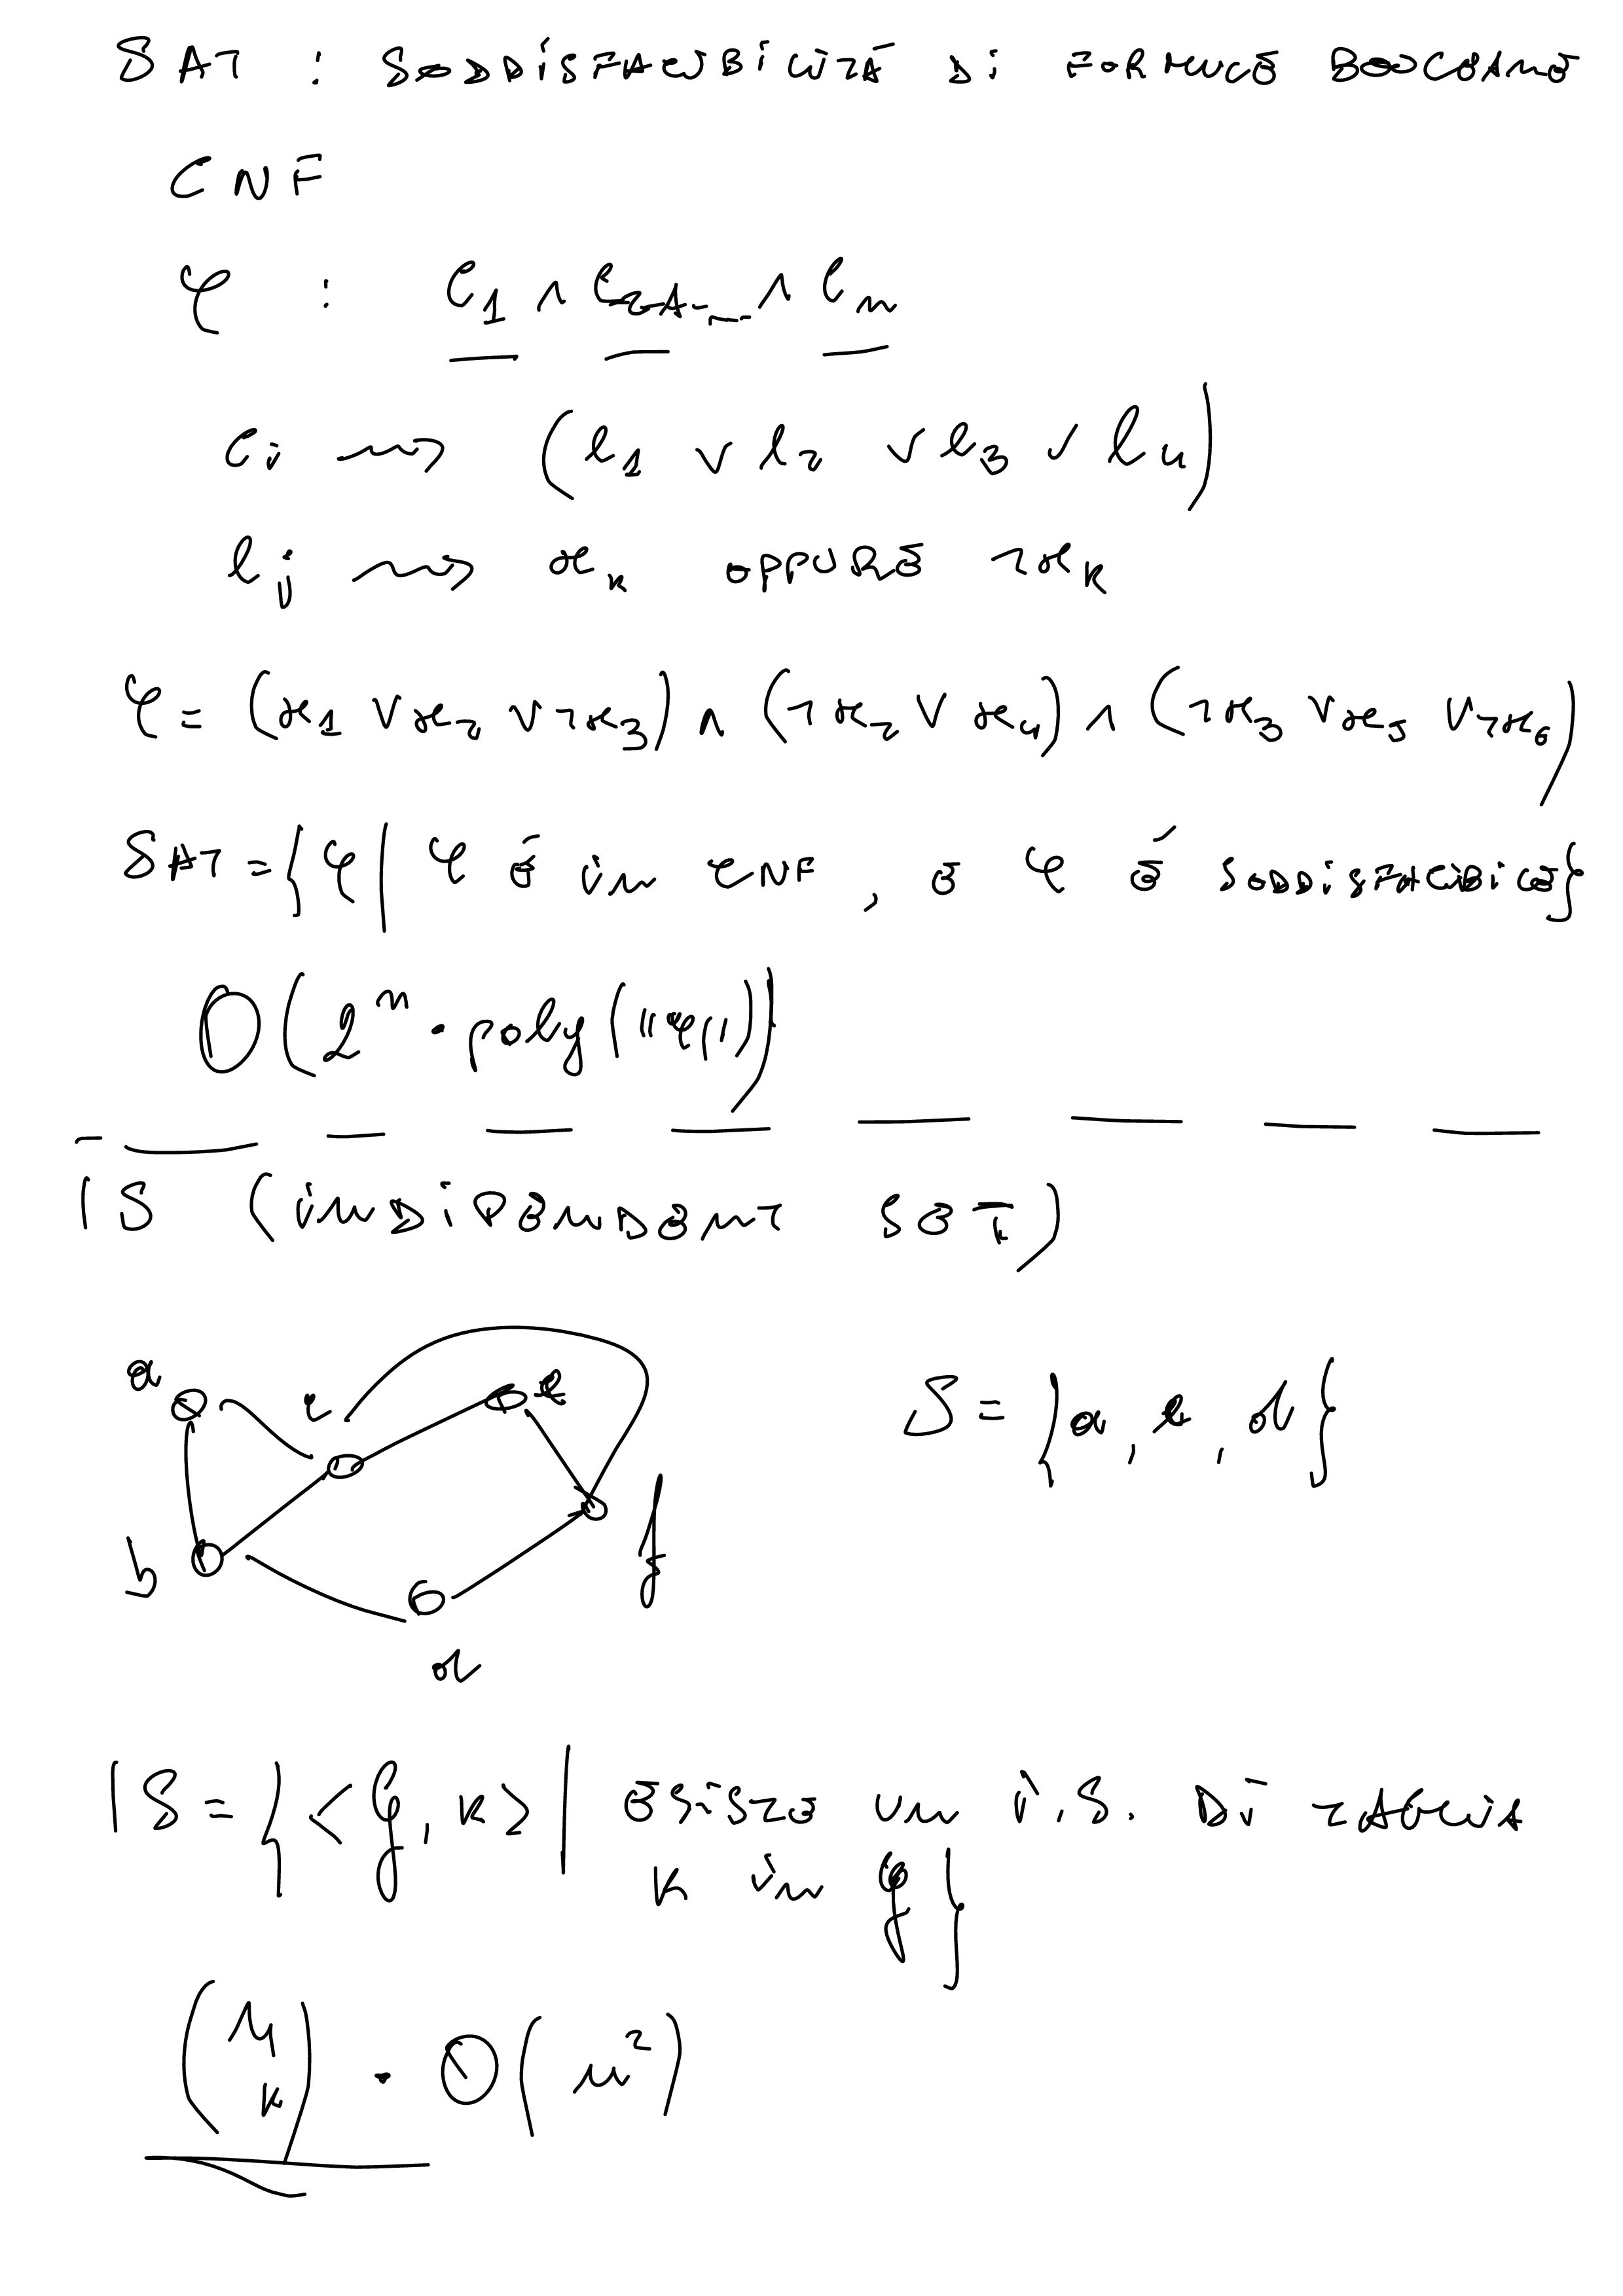 SAT : SODDISFACIBILITÀ DI FORMULE BOOLEANE
CNF
φ : C₁ ∧ C₂ ∧ ... ∧ Cₘ
Cᵢ ⇝ (l₁ ∨ l₂ ∨ l₃ ∨ l₄)
lⱼ ⇝ xₖ OPPURE ¬xₖ
φ = (x₁ ∨ x₂ ∨ ¬x₃) ∧ (¬x₂ ∨ x₄) ∧ (¬x₃ ∨ x₅ ∨ ¬x₆)
SAT = {φ | φ È in CNF, E φ È SODDISFACIBILE}
O(2ⁿ · poly(||φ||))
IS (INDIPENDENT SET)
a c e
S = {a, e, d}
b f
d
IS = {<G, k> | ESISTE UN i.S. DI TAGLIA
k in G}
(n k) · O(n²)